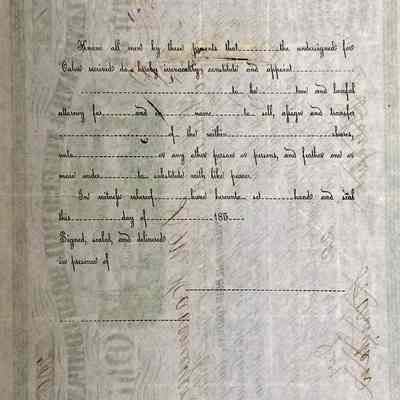 Know all men by these presents that............the undersigned for
Value received do hereby irrevocably constitute and appoint
to be............true and lawful
attorney for............and in............name............to sell, assign and transfer
of the within............shares,
unto............or any other person or persons, and further one or
more under............to substitute with like power.
In witness whereof............have hereunto set............hands and seal
this............day of............185
Signed, sealed, and delivered
in presence of